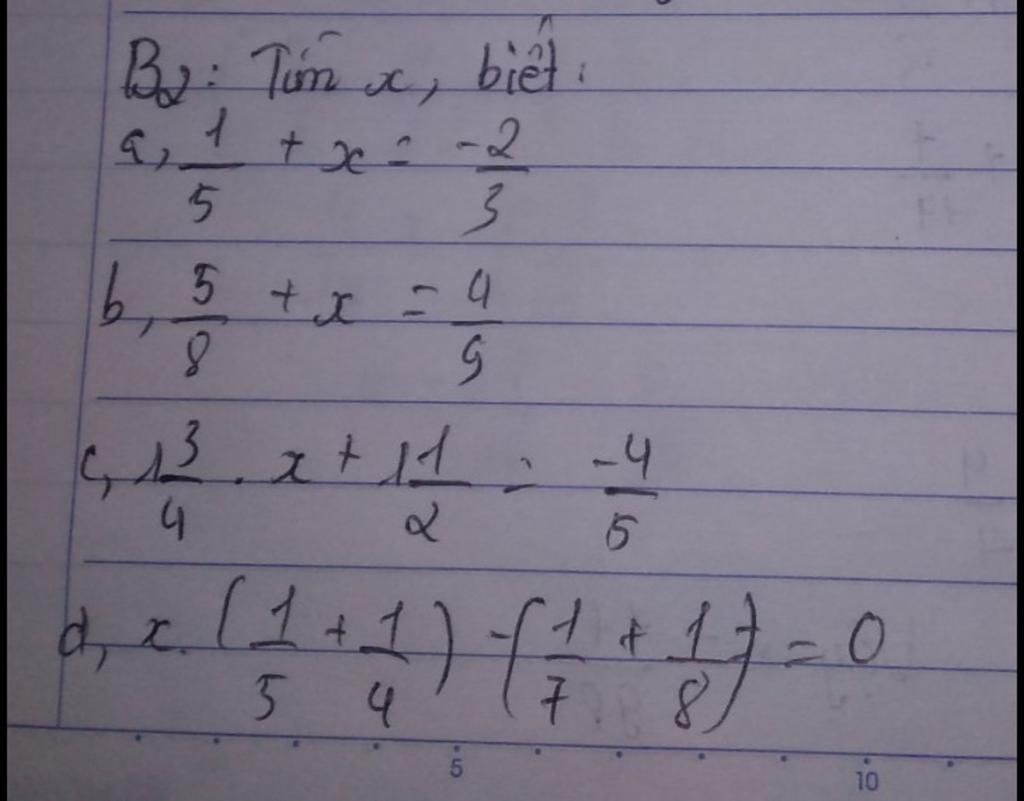 B2: Tìm x, biết:
a, 1/5 + x = -2/3
b, 5/8 + x = 4/9
c, 1 3/4 . x + 1 1/2 = -4/5
d, x. (1/5 + 1/4) - (1/7 + 1/8) = 0
5 10